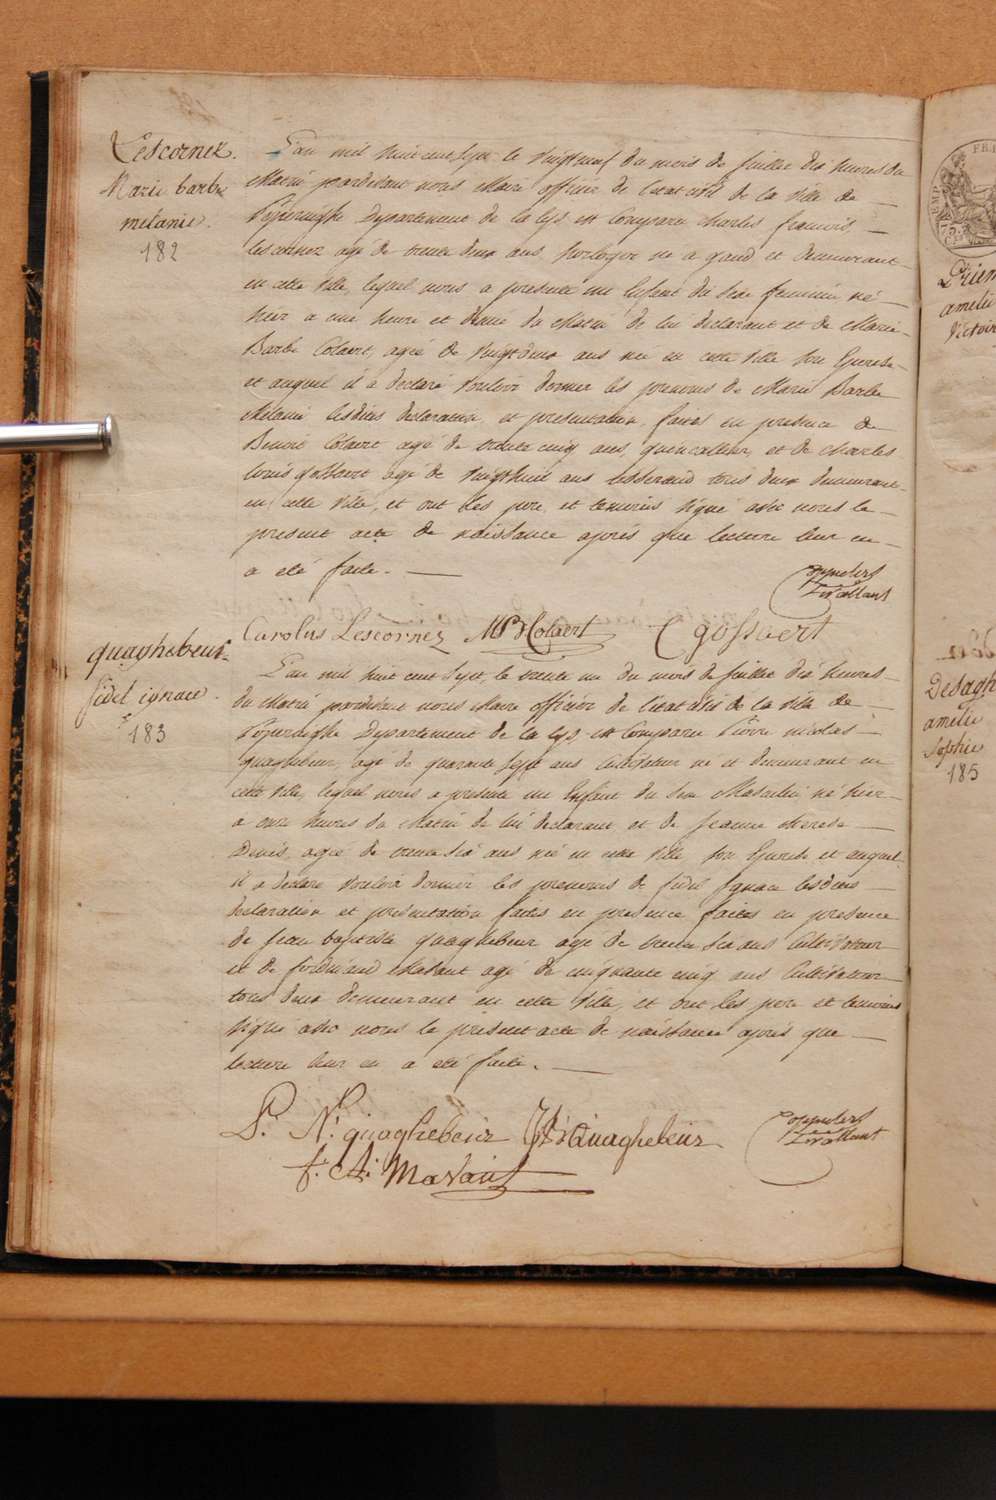 Lescornez.
Marie barbe
melanie.
182
L'an mil huit cent sept le vingt neuf du mois de juillet dix heures du
Matin pardevant nous Maire officier de l'etat civil de la ville de
Poperinghe Departement de la Lys est Comparu Charles francois
Lescornez agé de trente deux ans, horloger né a gand et demeurant
en cette ville, lequel nous a presenté un Enfant du sexe feminin né
hier a une heure et demie du Matin de lui declarant et de Marie
Barbe Colaert, agée de vingt deux ans née en cette ville son Epouse
et auquel il a declaré vouloir donner les prenoms de Marie Barbe
Melanie lesdites declaration, et presentation, faites en presence de
Benoit Colaert agé de trente cinq ans, quincailleur, et de Charles
louis gossaert agé de vingt huit ans tisserand tous deux demeurant
en cette ville, et ont les pere, et temoins signé avec nous le
present acte de naissance aprés que lecture leur en
a eté faite.
Carolus Lescornez Colaert C gossaert
quaghebeur
fidel ignace
183
L'an mil huit cent sept, le trente un du mois de juillet dix heures
du Matin pardevant nous Maire officier de l'etat civil de la ville de
Poperinghe Departement de la Lys, est Comparu Pierre nicolas
quaghebeur, agé de quarante sept ans Cultivateur né et demeurant en
cette ville, lequel nous a presenté un Enfant du sexe Masculin né hier
a onze heures du Matin de lui declarant et de jeanne therese
Denis, agée de trente six ans née en cette ville son Epouse, et auquel
il a declaré vouloir donner les prenoms de fidel Ignace lesdites
declaration et presentation faites en presence faites en presence
de jean baptiste quaghebeur agé de trente six ans Cultivateur
et de ferdinand Masant agé de cinquante cinq ans Cultivateur
tous deux demeurant en cette ville, et ont les pere et temoins
signé avec nous le present acte de naissance aprés que
lecture leur en a eté faite.
P. N. quaghebeur quaghebeur
amelie
Desagh
amelie
Sophie
185